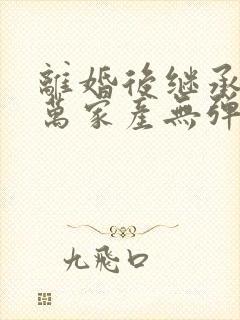 離婚後继承
萬家產無彈
九飛口